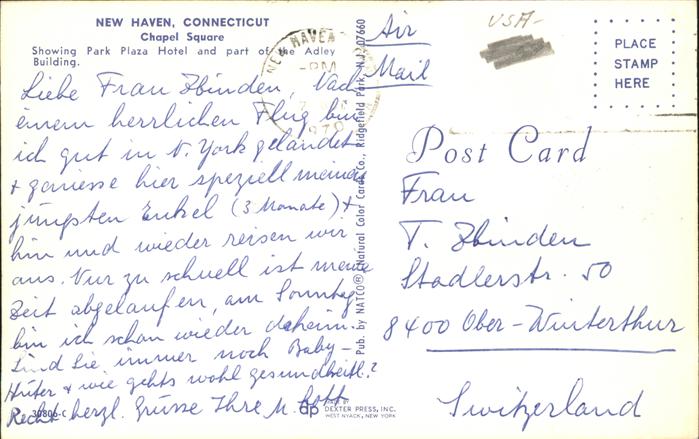 NEW HAVEN, CONNECTICUT
Chapel Square
Showing Park Plaza Hotel and part of the Adley
Building.
Liebe Frau Zbinden, Nach
einem herrlichen Flug bin
ich gut in N. York gelandet
+ geniesse hier speziell meinen
jüngsten Enkel (3 Monate) +
hin und wieder reisen wir
aus. Nur zu schnell ist meine
Zeit abgelaufen, am Sonntag
bin ich schon wieder daheim.
Sind Sie immer noch Baby-
Hüter + wie gehts wohl gesundheitl.?
Recht herzl. Grüsse Ihre M.
30806-C
dp
MADE BY
DEXTER PRESS, INC.
WEST NYACK, NEW YORK
Pub. by NATCO® (Natural Color Cards Co., Ridgefield Park, N.J. 07660
NEW HAVEN
PM
1970
Air
Mail
USA-
PLACE
STAMP
HERE
Post Card
Frau
T. Zbinden
Stadlerstr. 50
8400 Ober-Winterthur
Switzerland